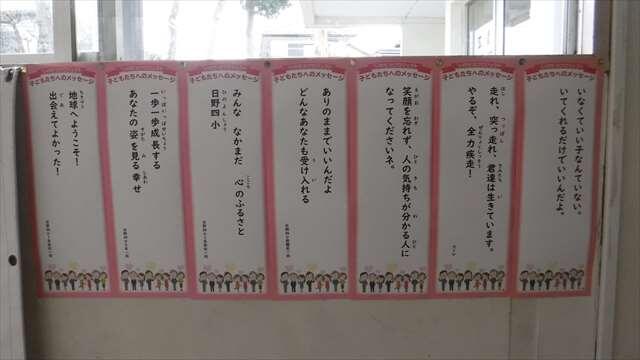 子どもたちへのメッセージ
いなくていい子なんていない。
いてくれるだけでいいんだよ。
子どもたちへのメッセージ
走れ、突っ走れ、君達は生きています。
やるぞ、全力疾走！
子どもたちへのメッセージ
笑顔を忘れず、人の気持ちが分かる人に
なってくださいネ。
子どもたちへのメッセージ
ありのままでいいんだよ
どんなあなたも受け入れる
子どもたちへのメッセージ
みんな なかまだ 心のふるさと
日野四小
子どもたちへのメッセージ
一歩一歩成長する
あなたの姿を見る幸せ
子どもたちへのメッセージ
地球へようこそ！
出会えてよかった！